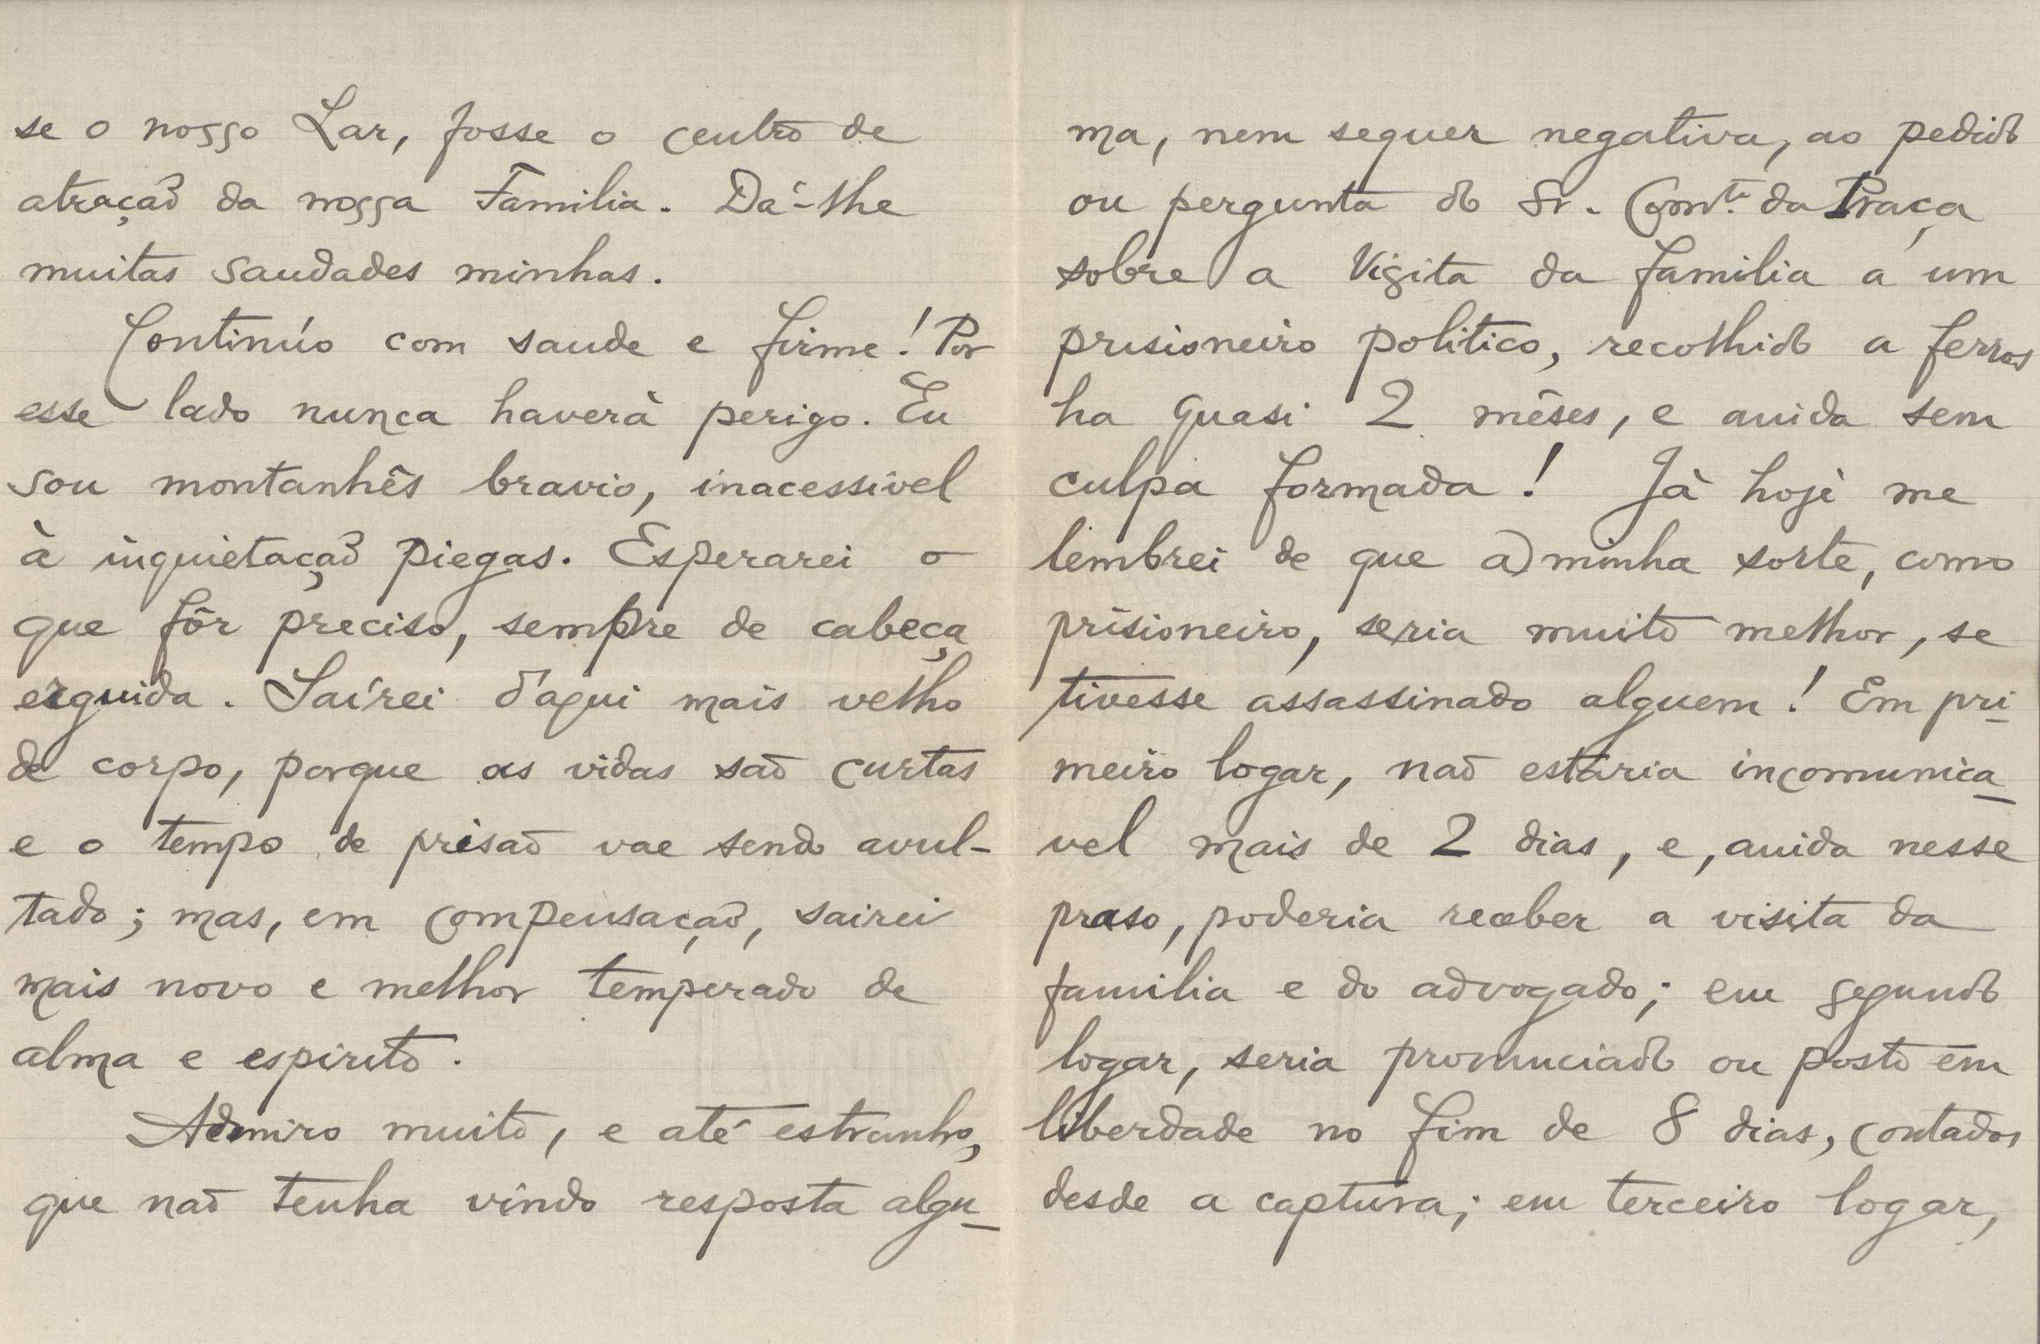 se o nosso Lar, fosse o centro de
atração da nossa Familia. Dá-lhe
muitas saudades minhas.
Continúo com saude e firme! Por
esse lado nunca haverà perigo. Eu
sou montanhês bravio, inacessivel
à inquietação piegas. Esperarei o
que fôr preciso, sempre de cabeça
erguida. Saírei d'aqui mais velho
de corpo, porque as vidas são curtas
e o tempo de prisão vae sendo avul-
tado; mas, em compensação, sairei
mais novo e melhor temperado de
alma e espirito.
Admiro muito, e até estranho,
que não tenha vindo resposta algu-
ma, nem sequer negativa, ao pedido
ou pergunta do Sr. Comte. da Praça
sobre a visita da familia a um
prisioneiro politico, recolhido a ferros
ha quasi 2 mêses, e ainda sem
culpa formada! Jà hoje me
lembrei de que a minha sorte, como
prisioneiro, seria muito melhor, se
tivesse assassinado alguem! Em pri-
meiro logar, não estaria incomunica-
vel mais de 2 dias, e, ainda nesse
praso, poderia receber a visita da
familia e do advogado; em segundo
logar, seria pronunciado ou posto em
liberdade no fim de 8 dias, contados
desde a captura; em terceiro logar,